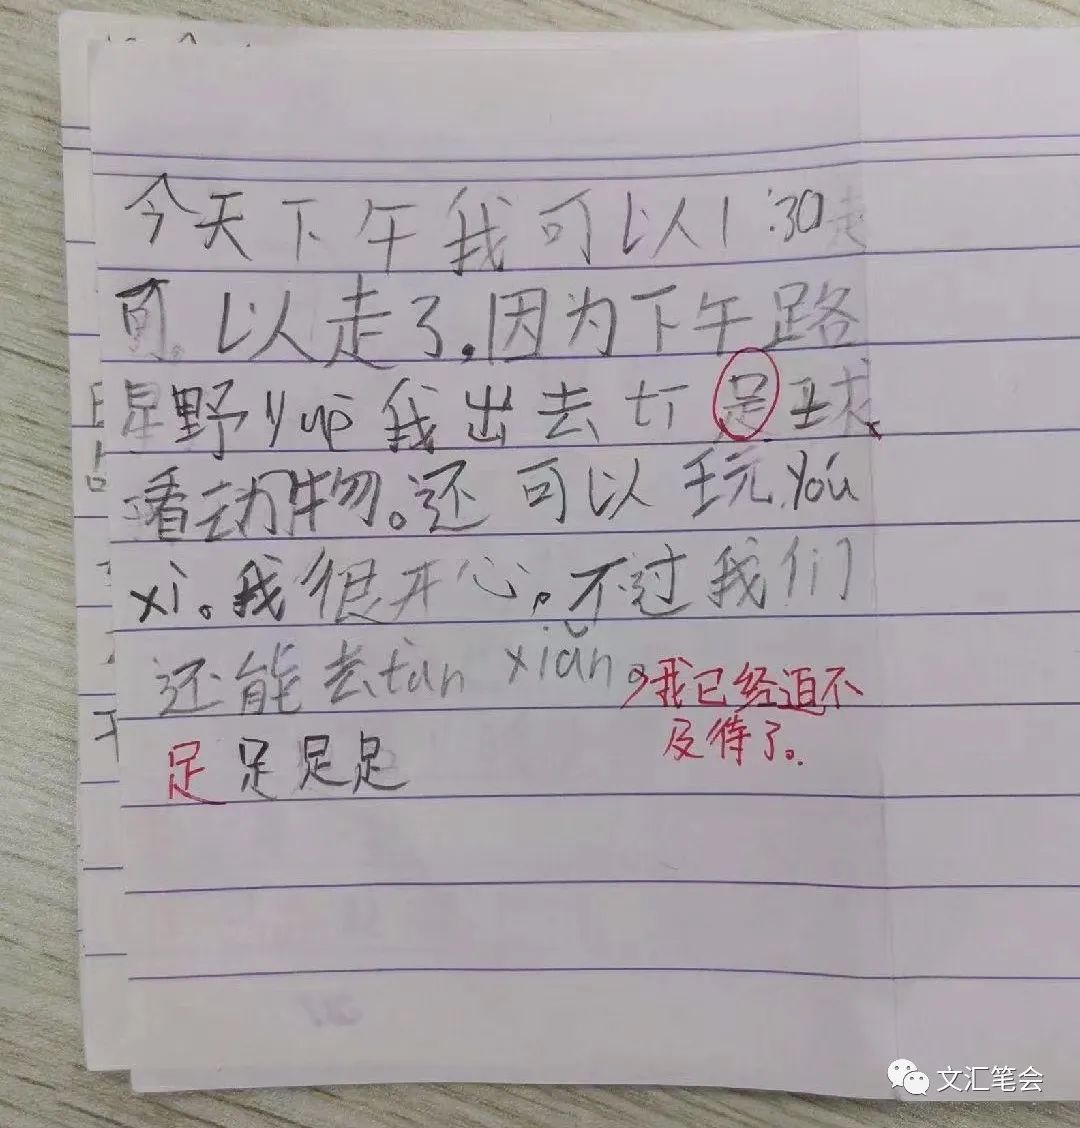 今天下午我可以1:30走
可以走了,因为下午路
星野yuē我出去打足球
看动物。还可以玩yóu
xì。我很开心。不过我们
还能去tàn xiǎn,我已经迫不
及待了。
足足足足
文汇笔会